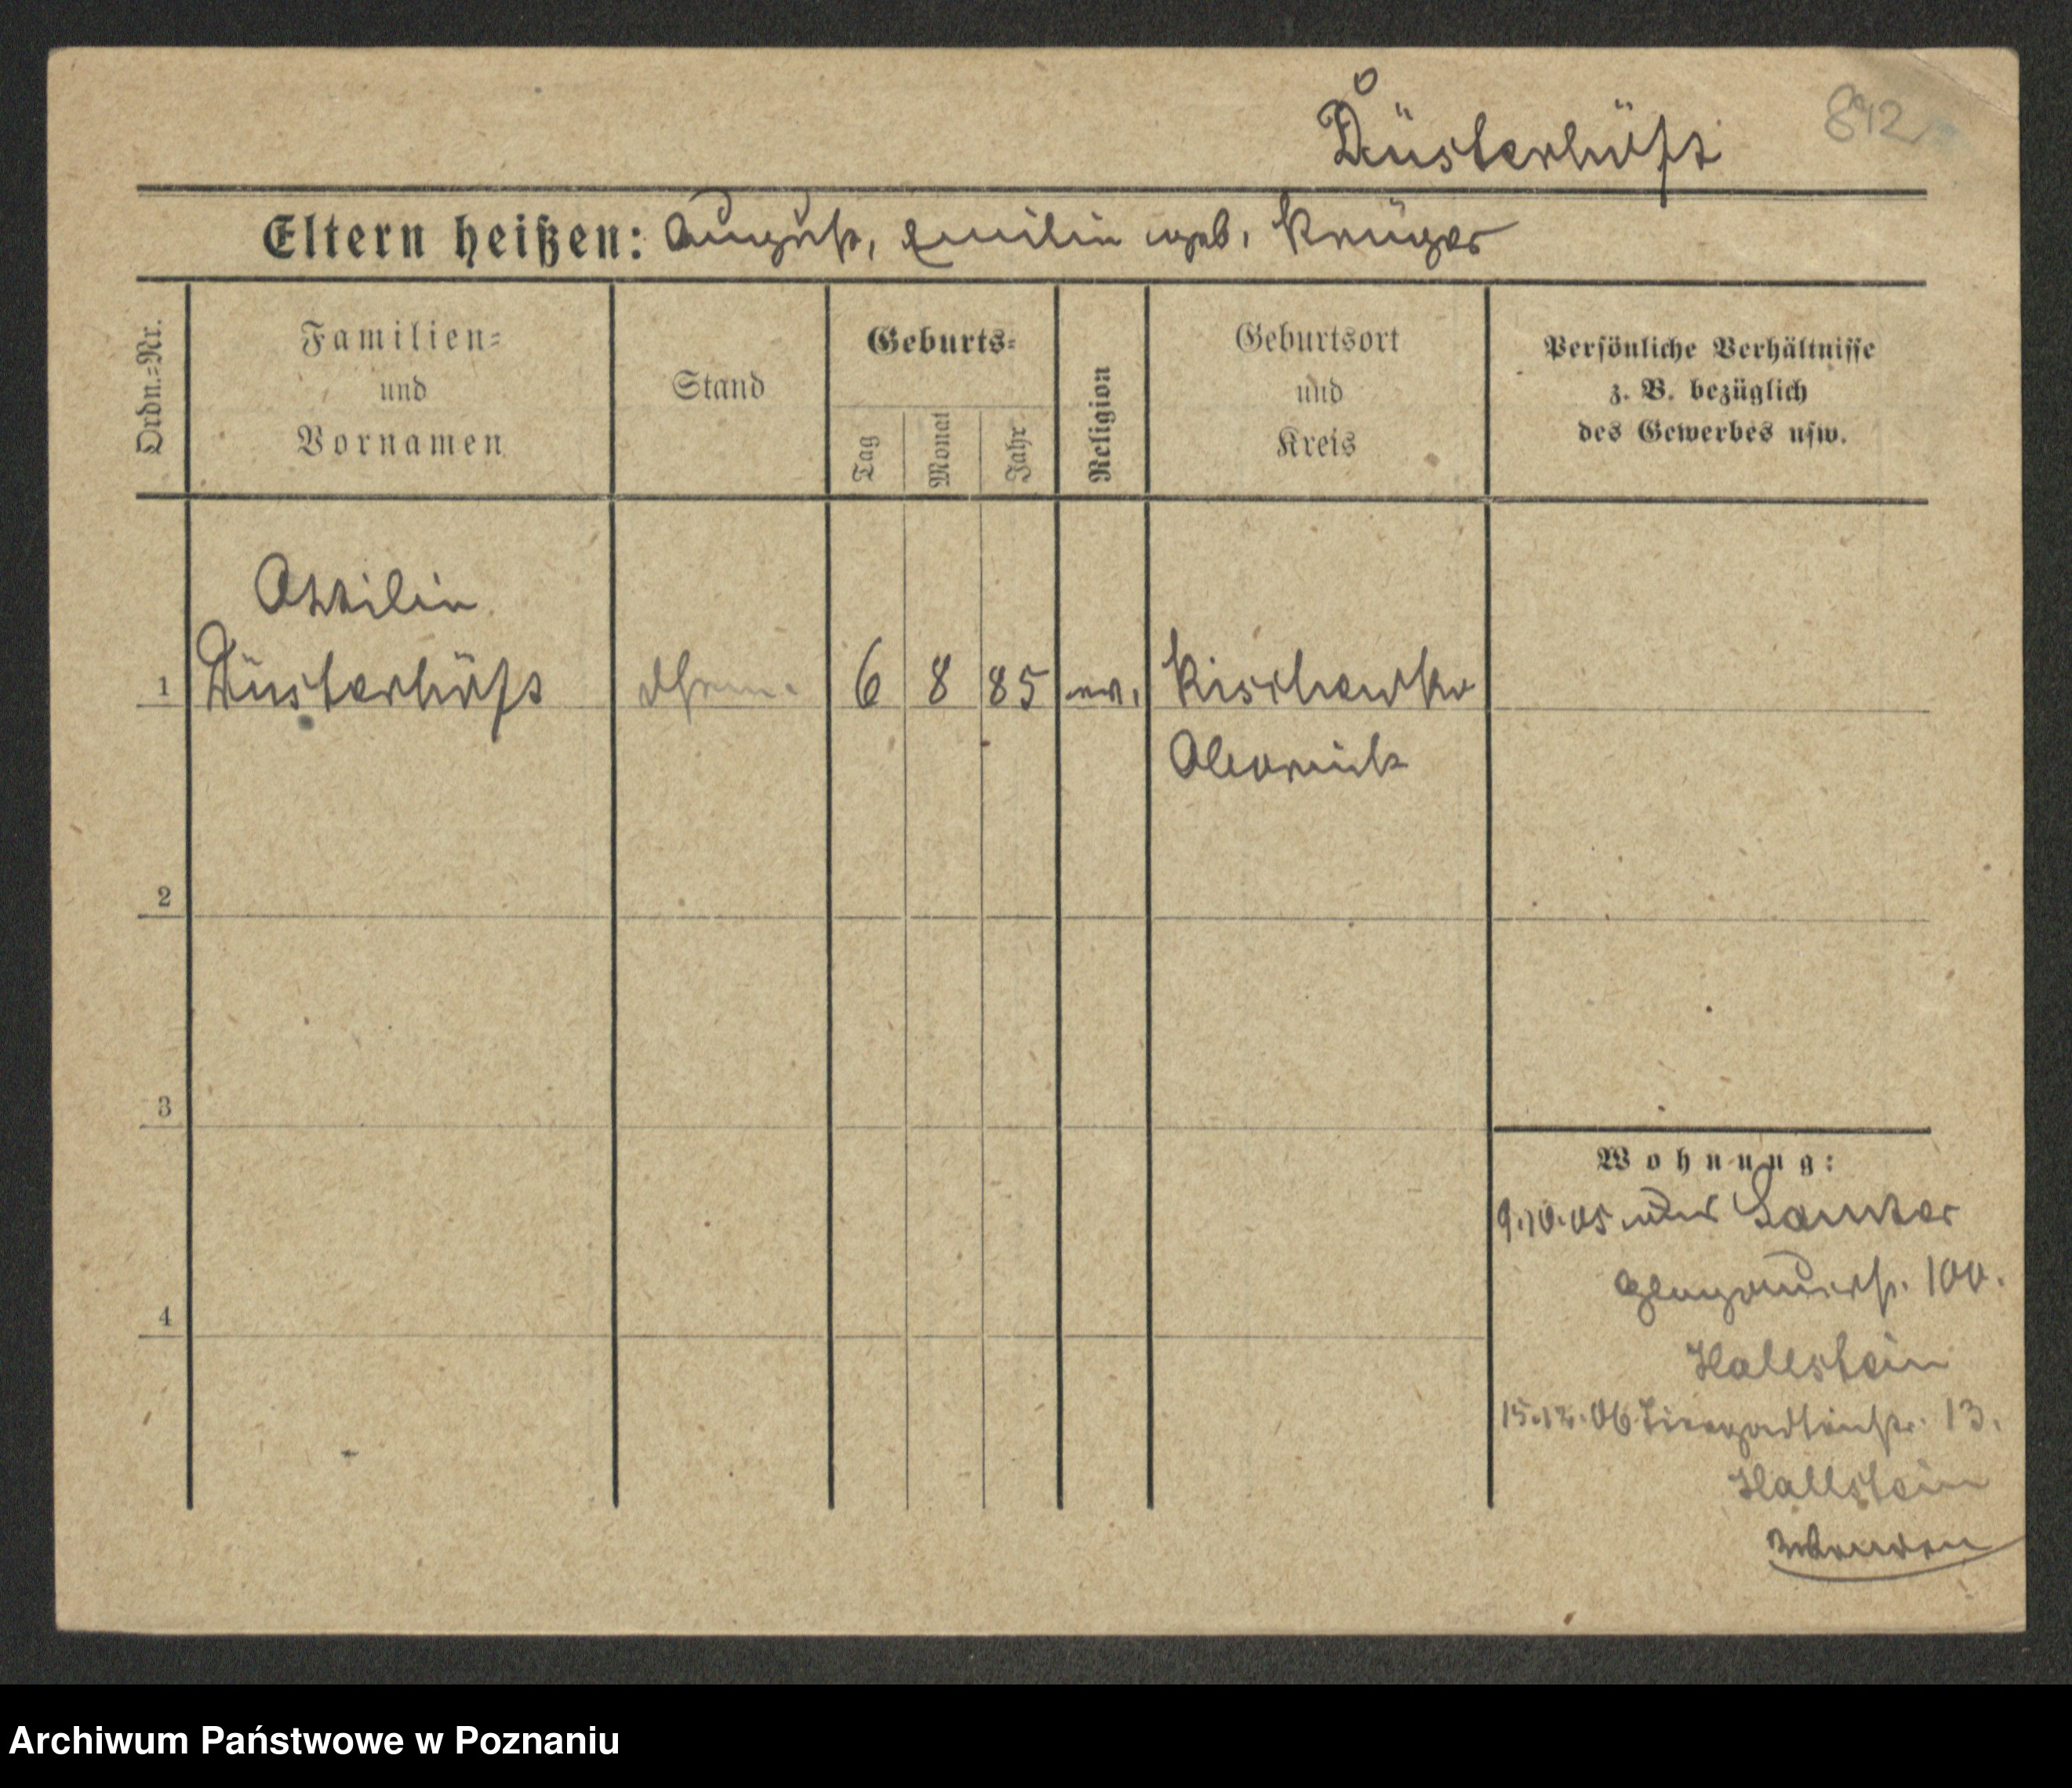 Düsterhöft
892
Eltern heißen: August, Emilie geb. Krüger
Ordn.-Nr.
Familien-
und
Vornamen
Stand
Geburts-
Tag
Monat
Jahr
Religion
Geburtsort
und
Kreis
Persönliche Verhältnisse
z. B. bezüglich
des Gewerbes usw.
Ottilie
1 Düsterhöft 6 8 85 ev. Kischewko
Obornick
2
3
4
Wohnung:
9.10.05 Samter
Glogauerstr. 100.
Hallstein
15.12.06 Tiergartenstr. 13.
Hallstein
wenden
Archiwum Państwowe w Poznaniu